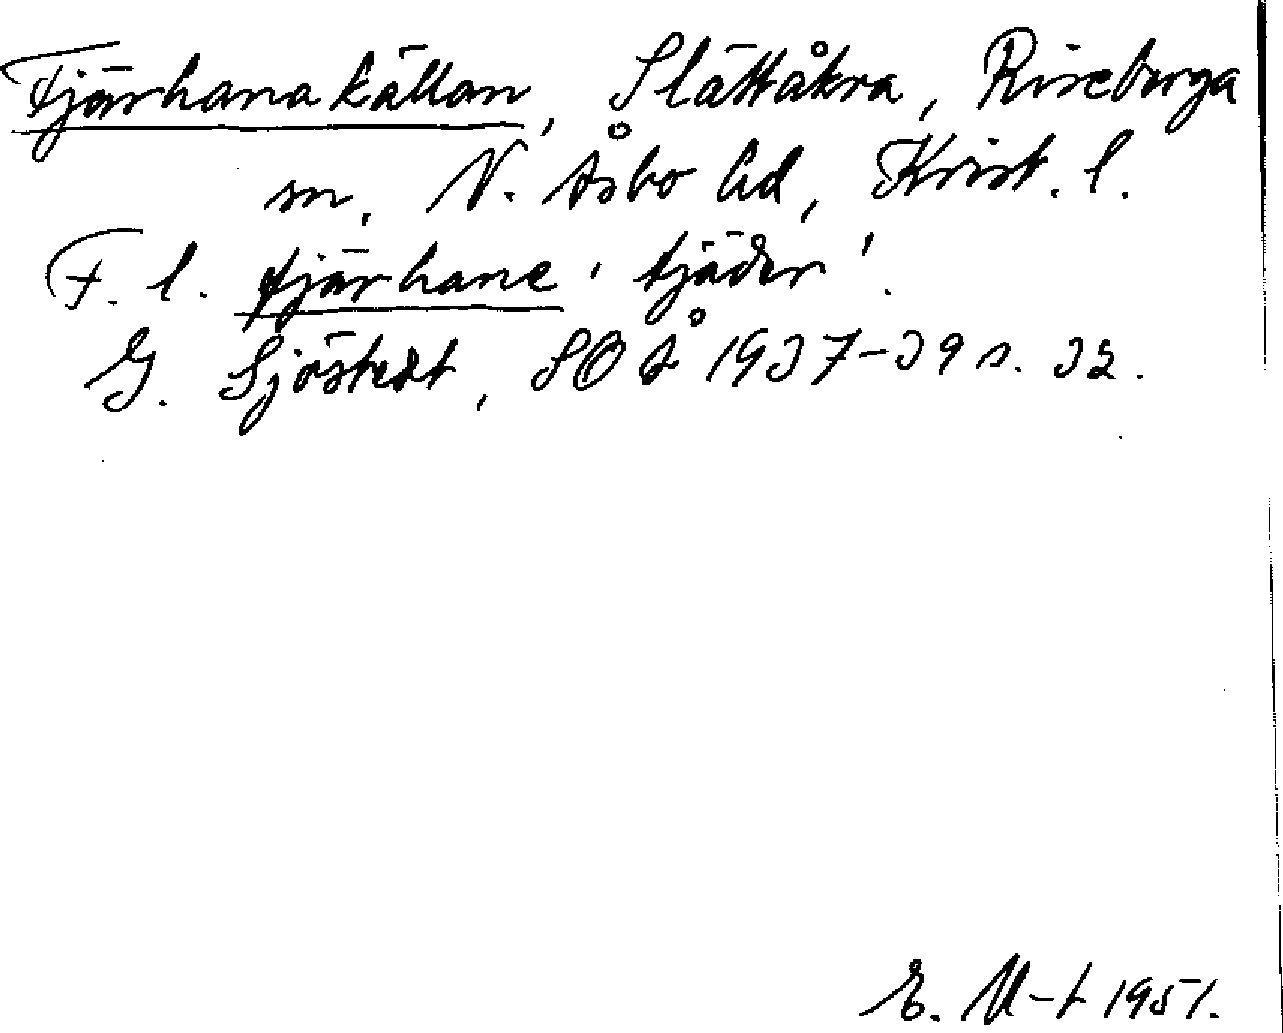 Fjärhanakällan, Slättåkra, Riseberga
sn, N. Åsbo hd, Krist. l.
F. l. fjärhane 'tjäder'.
G. Sjöstedt, SOÅ 1937-39 s. 32.
E. M-t 1951.